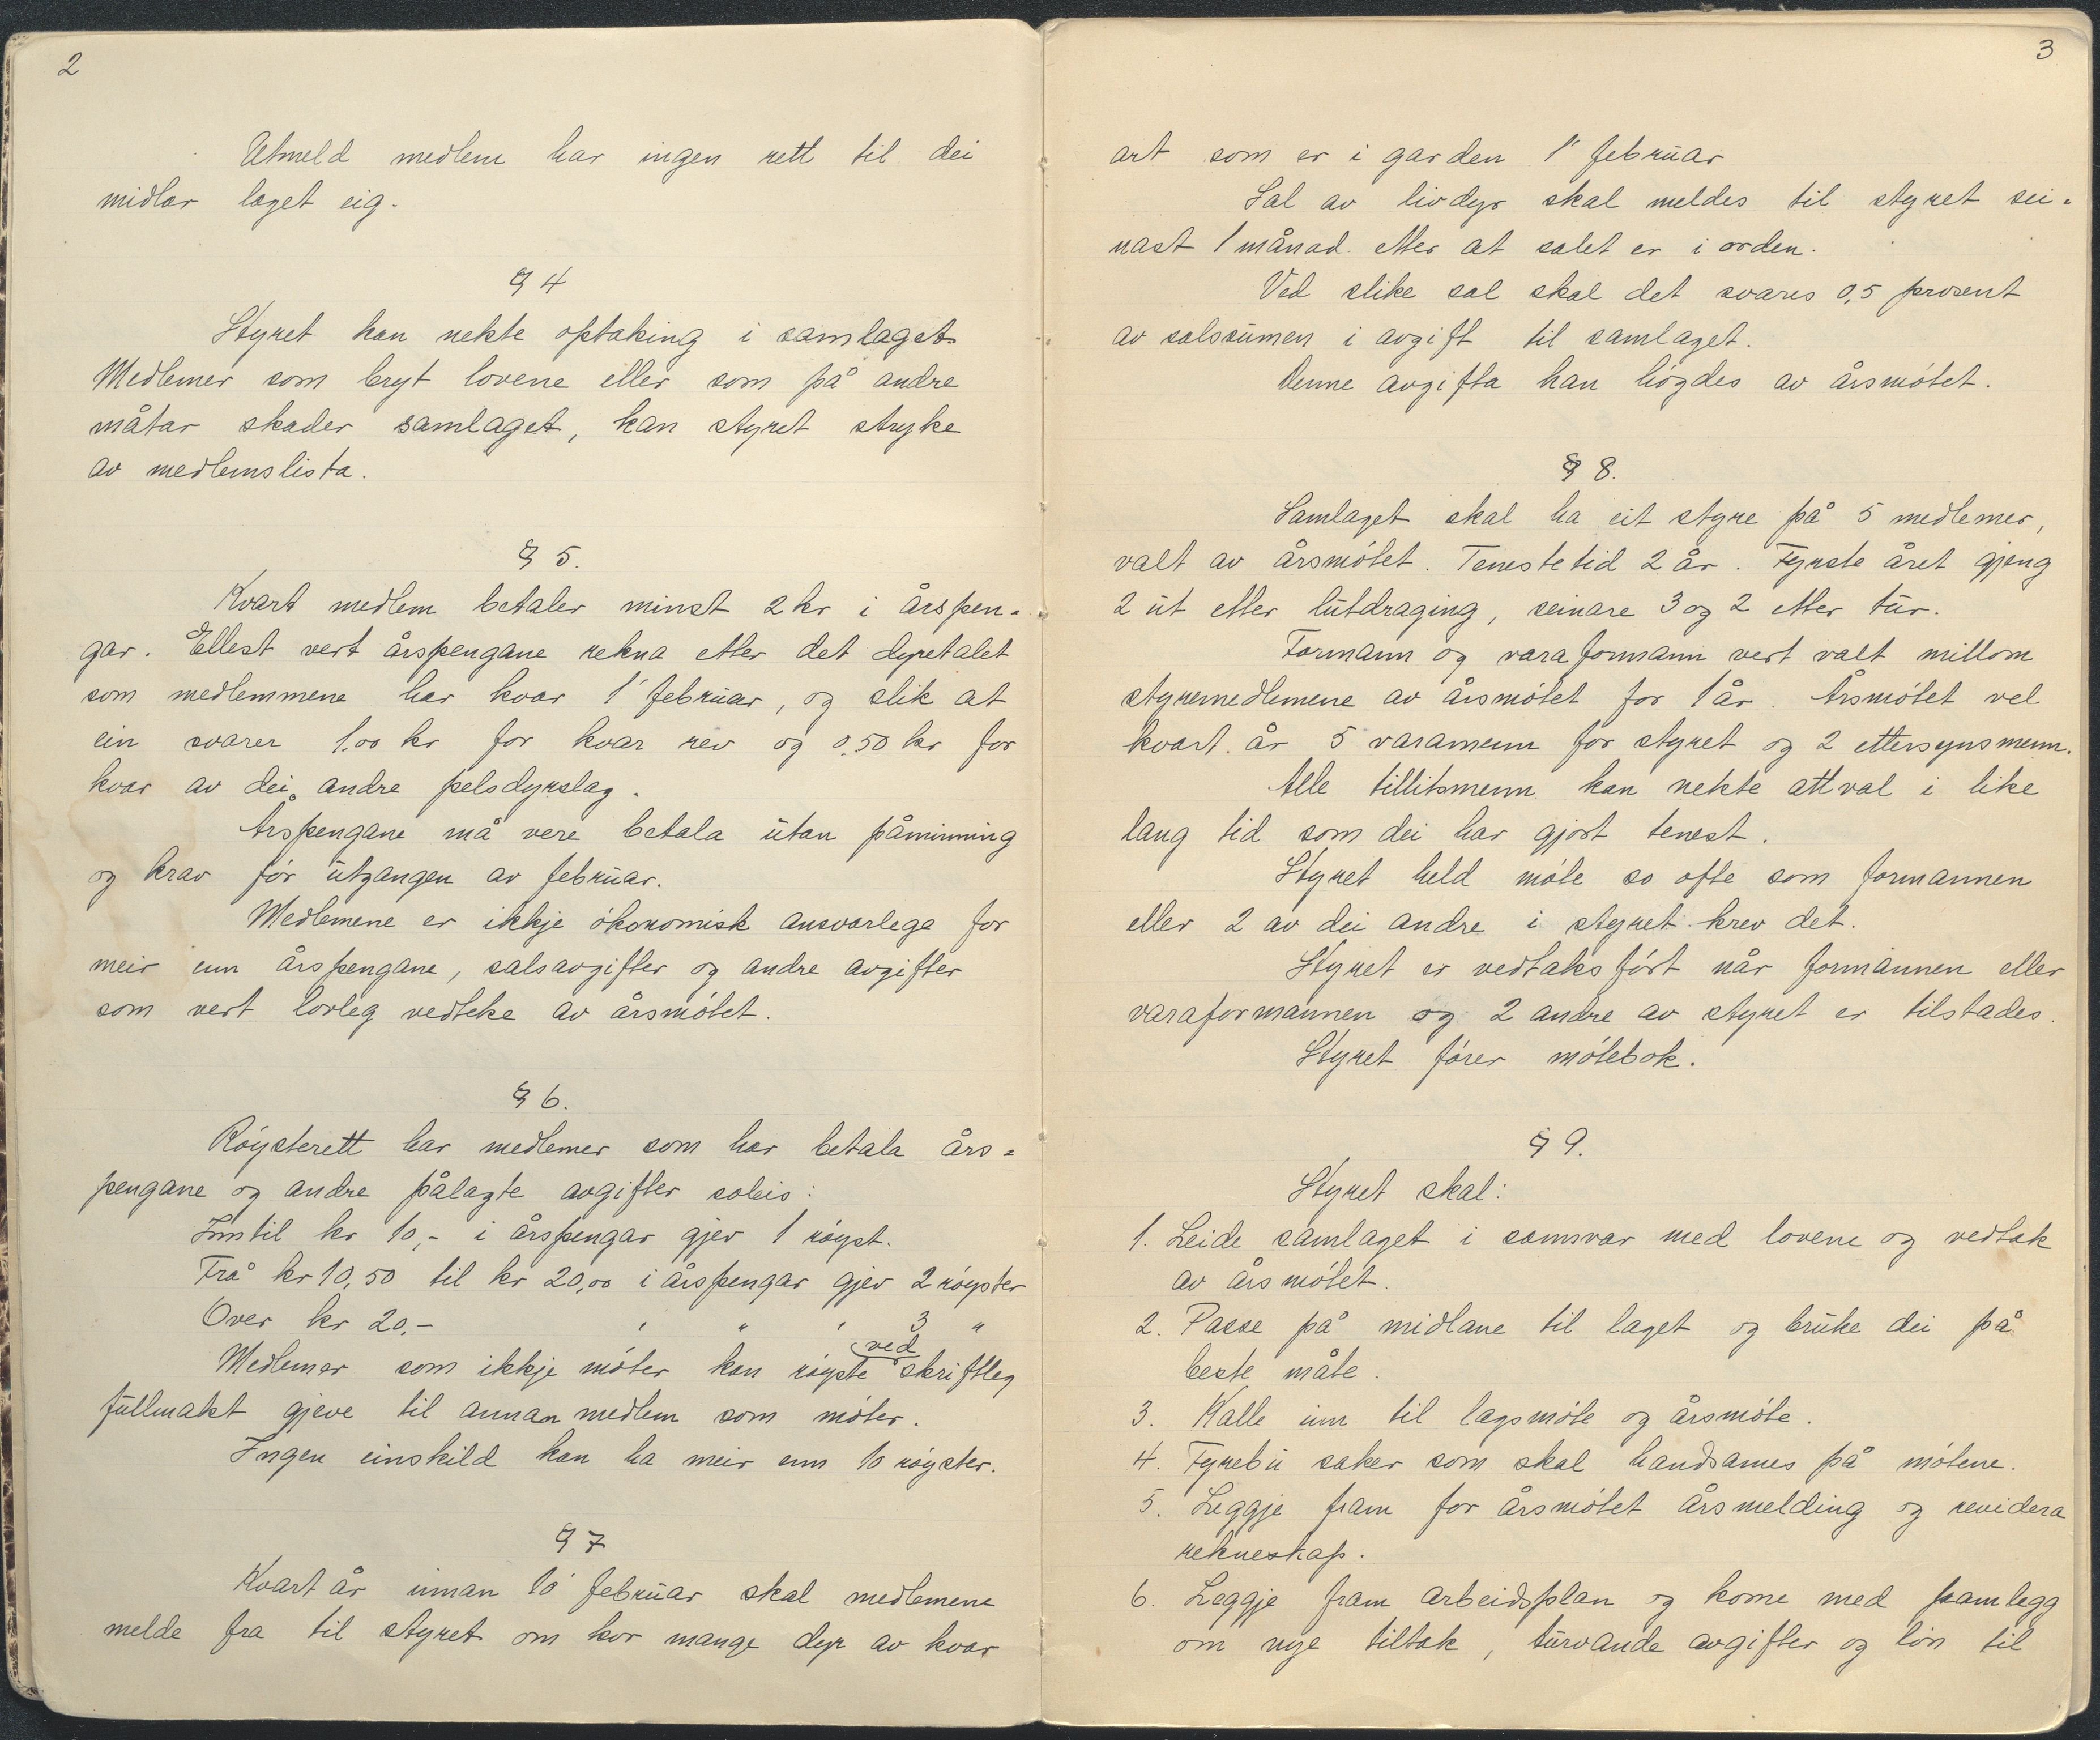 2
Utmeld medlem har ingen rett til dei
midlar laget eig.
§ 4
Styret kan nekte optaking i samlaget
Medlemer som bryt lovene eller som på andre
måtar skader samlaget, kan styret stryke
av medlemslista.
§ 5.
Kvart medlem betaler minst 2 kr i årspen-
gar. Ellest vert årspengane rekna etter det dyretalet
som medlemmene har kvar 1' februar, og slik at
ein svarer 1.00 kr for kvar rev og 0.50 kr for
kvar av dei andre pelsdyrslag.
Årspengane må vere betala utan påminning
og krav før utgangen av februar.
Medlemene er ikkje økonomisk ansvarlege for
meir enn årspengane, salsavgifter og andre avgifter
som vert lovleg vedteke av årsmøtet.
§ 6.
Røysterett har medlemer som har betala års=
pengane og andre pålagte avgifter soleis:
Inntil kr 10,- i årspengar gjev 1 røyst.
Frå kr 10,50 til kr 20,00 i årspengar gjev 2 røyster
Over kr 20,- " " " 3 "
Medlemer som ikkje møter kan røyste ved skriftleg
fullmakt gjeve til annan medlem som møter.
Ingen einskild kan ha meir enn 10 røyster.
§ 7
Kvart år innan 10' februar skal medlemene
melde fra til styret om kor mange dyr av kvar
3
art som er i garden 1' februar
Sal av livdyr skal meldes til styret sei=
nast 1 månad etter at salet er i orden.
Ved slike sal skal det svares 0,5 prosent
av salssumen i avgift til samlaget.
Denne avgifta kan høgdes av årsmøtet.
§ 8.
Samlaget skal ha eit styre på 5 medlemer,
valt av årsmøtet. Tenestetid 2 år. Fyrste året gjeng
2 ut etter lutdraging, seinare 3 og 2 etter tur.
Formann og varaformann vert valt millom
styremedlemene av årsmøtet for 1 år. Årsmøtet vel
kvart år 5 varamenn for styret og 2 ettersynsmenn.
Alle tillitsmenn kan nekte attval i like
lang tid som dei har gjort tenest.
Styret held møte so ofte som formannen
eller 2 av dei andre i styret krev det.
Styret er vedtaksført når formannen eller
varaformannen og 2 andre av styret er tilstades.
Styret fører møtebok.
§ 9.
Styret skal:
1. Leide samlaget i samsvar med lovene og vedtak
av årsmøtet.
2. Passe på midlane til laget og bruke dei på
beste måte.
3. Kalle inn til lagsmøte og årsmøte.
4. Fyrebu saker som skal handsames på møtene.
5. Leggje fram for årsmøtet årsmelding og revidera
rekneskap.
6. Leggje fram arbeidsplan og kome med framlegg
om nye tiltak, turvande avgifter og løn til